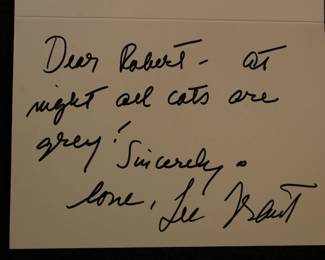 Dear Robert - at
night all cats are
grey!
Sincerely &
love, Lee Grant